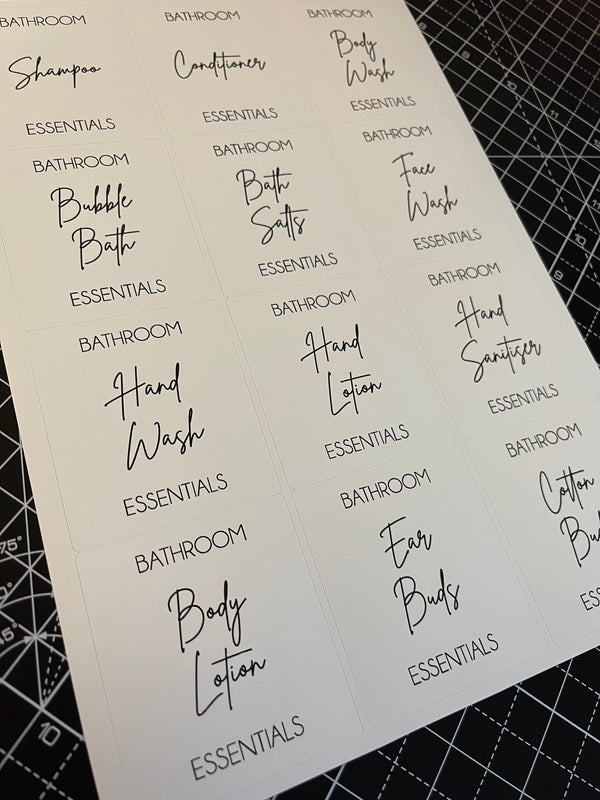 BATHROOM
Shampoo
ESSENTIALS
BATHROOM
Conditioner
ESSENTIALS
BATHROOM
Body
Wash
ESSENTIALS
BATHROOM
Bubble
Bath
ESSENTIALS
BATHROOM
Bath
Salts
ESSENTIALS
BATHROOM
Face
Wash
ESSENTIALS
BATHROOM
Hand
Wash
ESSENTIALS
BATHROOM
Hand
Lotion
ESSENTIALS
BATHROOM
Hand
Sanitiser
ESSENTIALS
BATHROOM
Body
Lotion
ESSENTIALS
BATHROOM
Ear
Buds
ESSENTIALS
BATHROOM
Cotton